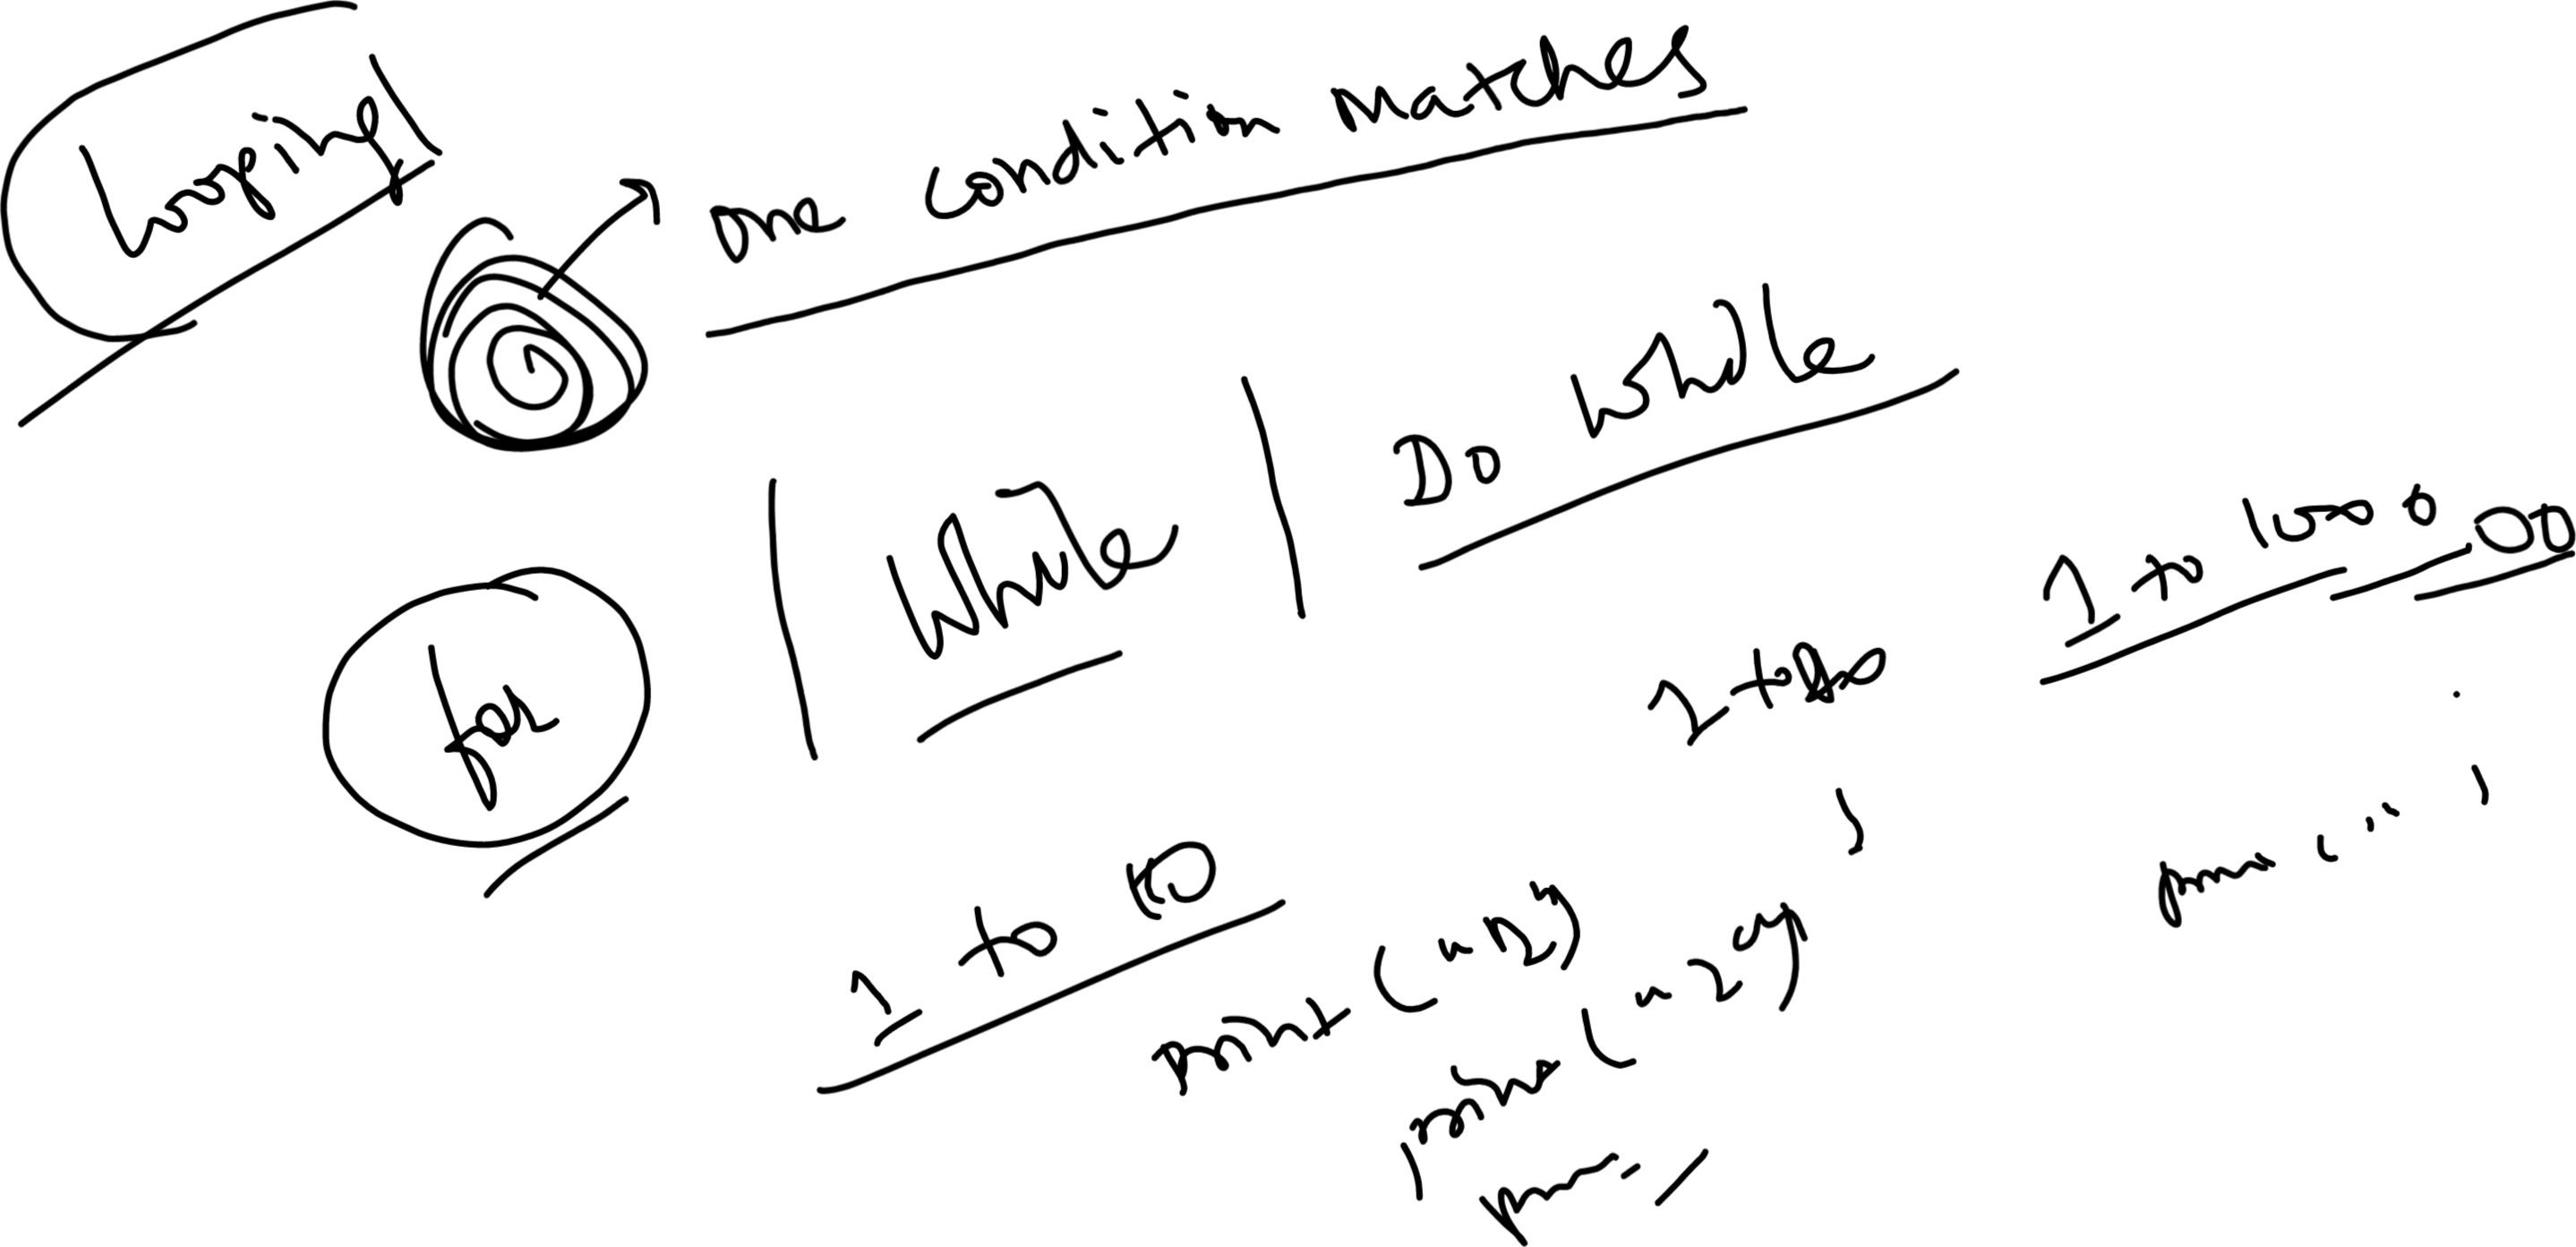 Looping
one condition matches
for
While
Do While
1 to 10
print ("
print (" 2 ")
1 to 1000 0 00